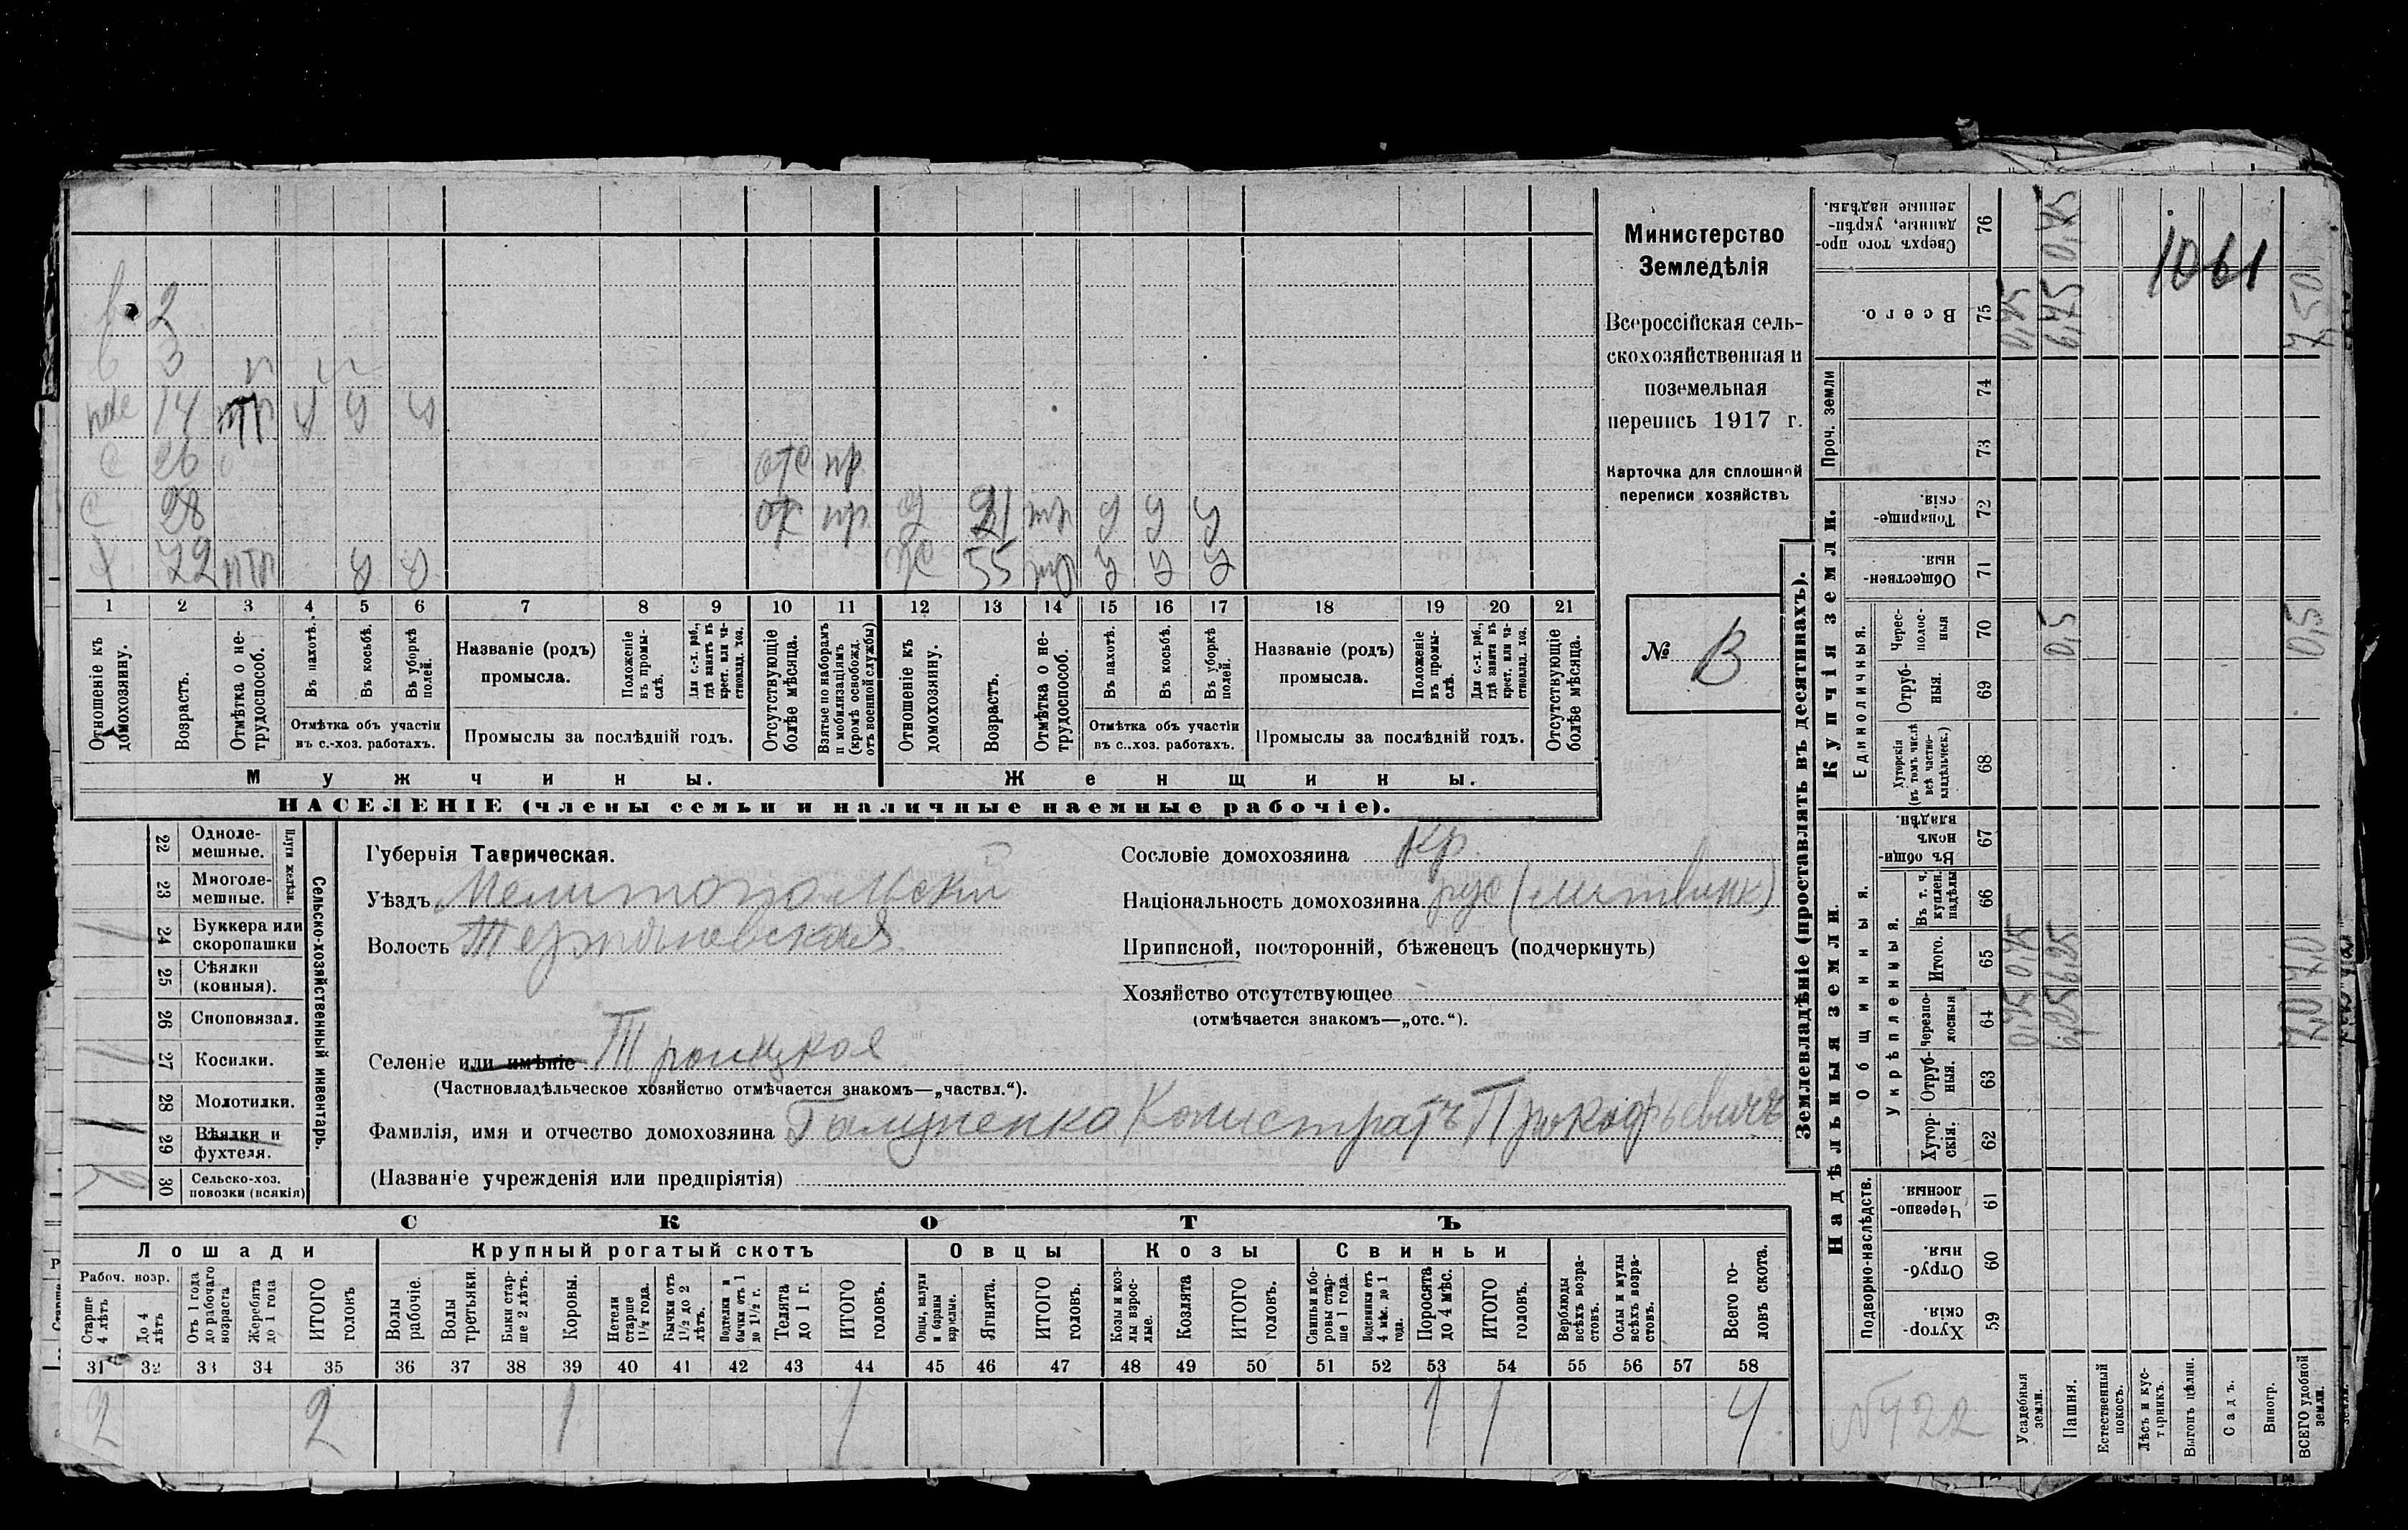 в 2
в 3 п п
пле 14 птп у у у
с 26 отс пр
с 28 отс пр д 21 птп у у у
х 72 птп у у ж 55 у у у
1 2 3 4 5 6 7 8 9 10 11 12 13 14 15 16 17 18 19 20 21
Отношеніе къ домохозяину.
Возрастъ.
Отмѣтка о не-трудоспособ.
Въ пахотѣ.
Въ косьбѣ.
Въ уборкѣ полей.
Отмѣтка объ участіи
въ с.-хоз. работахъ.
Названіе (родъ)
промысла.
Положеніе въ промы-слѣ.
Для с.-х. раб., гдѣ занятъ въ крест. или ча-стновлад. хоз.
Промыслы за послѣдній годъ.
Отсутствующіе болѣе мѣсяца.
Взятые по наборамъ и мобилизаціямъ (кромѣ освобожд. отъ военной службы)
Отношеніе къ домохозяину.
Возрастъ.
Отмѣтка о не-трудоспособ.
Въ пахотѣ.
Въ косьбѣ.
Въ уборкѣ полей.
Отмѣтка объ участіи
въ с.-хоз. работахъ.
Названіе (родъ)
промысла.
Положеніе въ промы-слѣ.
Для с.-х. раб., гдѣ занята въ крест. или ча-стновлад. хоз.
Промыслы за послѣдній годъ.
Отсутствующіе болѣе мѣсяца.
Мужчины.
Женщины.
НАСЕЛЕНІЕ (члены семьи и наличные наемные рабочіе).
Министерство
Земледѣлія
Всероссійская сель-
скохозяйственная и
поземельная
перепись 1917 г.
Карточка для сплошной
переписи хозяйствъ
№ В
Сельско-хозяйственный инвентарь.
Плуги желѣзн.
22 Одноле-мешные.
23 Многоле-мешные.
24 Буккера или скоропашки 1
25 Сѣялки (конныя).
26 Сноповязал.
27 Косилки. 1
28 Молотилки.
29 Вѣялки и фухтеля. 1
30 Сельско-хоз. повозки (всякія) 2
Губернія Таврическая.
Уѣздъ Мелитопольскій
Волость Терпѣневская
Селеніе или имѣніе Троицкое
(Частновладѣльческое хозяйство отмѣчается знакомъ—„частвл.“).
Фамилія, имя и отчество домохозяина Галушенко Калистратъ Прокофьевичъ
(Названіе учрежденія или предпріятія)
Сословіе домохозяина кр.
Національность домохозяина рус (литвинк)
Приписной, посторонній, бѣженецъ (подчеркнуть)
Хозяйство отсутствующее
(отмѣчается знакомъ—„отс.“).
СКОТЪ
Лошади
Рабоч. возр.
Старше 4 лѣтъ
До 4 лѣтъ
Отъ 1 года до рабочаго возраста
Жеребята до 1 года
ИТОГО головъ
Крупный рогатый скотъ
Волы рабочіе.
Волы третьяки.
Быки стар-ше 2 лѣтъ.
Коровы.
Нетели старше 1½ года.
Бычки отъ 1½ до 2 лѣтъ.
Подтелки и бычки отъ 1 до 1½ г.
Телята до 1 г.
ИТОГО головъ.
Овцы
Овцы, валухи и бараны взрослые.
Ягнята.
ИТОГО головъ.
Козы
Козы и коз-лы взрос-лые.
Козлята
ИТОГО головъ.
Свиньи
Свиньи и бо-ровы стар-ше 1 года.
Подсвинки отъ 4 мѣс. до 1 года.
Поросята до 4 мѣс.
ИТОГО головъ.
Верблюды всѣхъ возра-стовъ.
Ослы и мулы всѣхъ возра-стовъ.
Всего го-ловъ скота.
31 32 33 34 35 36 37 38 39 40 41 42 43 44 45 46 47 48 49 50 51 52 53 54 55 56 57 58
2 2 1 1 1 1 4
Землевладѣніе (проставлять въ десятинахъ).
Надѣльныя земли.
Подворно-наслѣдств.
59 Хутор-скія.
60 Отруб-ныя.
61 Черезпо-лосныя.
Общинныя.
Укрѣпленныя.
62 Хутор-скія.
63 Отруб-ныя.
64 Черезпо-лосныя 0,75 6,25 7,0
65 Итого. 0,75 6,25 7,0
66 Въ т. ч. куплен. надѣлы
67 Въ общи-номъ владѣн.
Купчія земли.
Единоличныя.
68 Хуторскія (въ томъ числѣ всѣ частно-владѣльческ.)
69 Отруб-ныя.
70 Черес-полос-ныя 0,5 0,5
71 Обществен-ныя
72 Товарище-скія.
Проч. земли
73
74
75 Всего. 0,75 6,75 7,50
76 Сверхъ того про-данные, укрѣп-ленные надѣлы. 0,75
1061
№422
Усадебныя земли.
Пашня.
Естественный покосъ.
Лѣсъ и кус-тарникъ.
Выгонъ цѣлин.
Садъ.
Виногр.
ВСЕГО удобной земли.